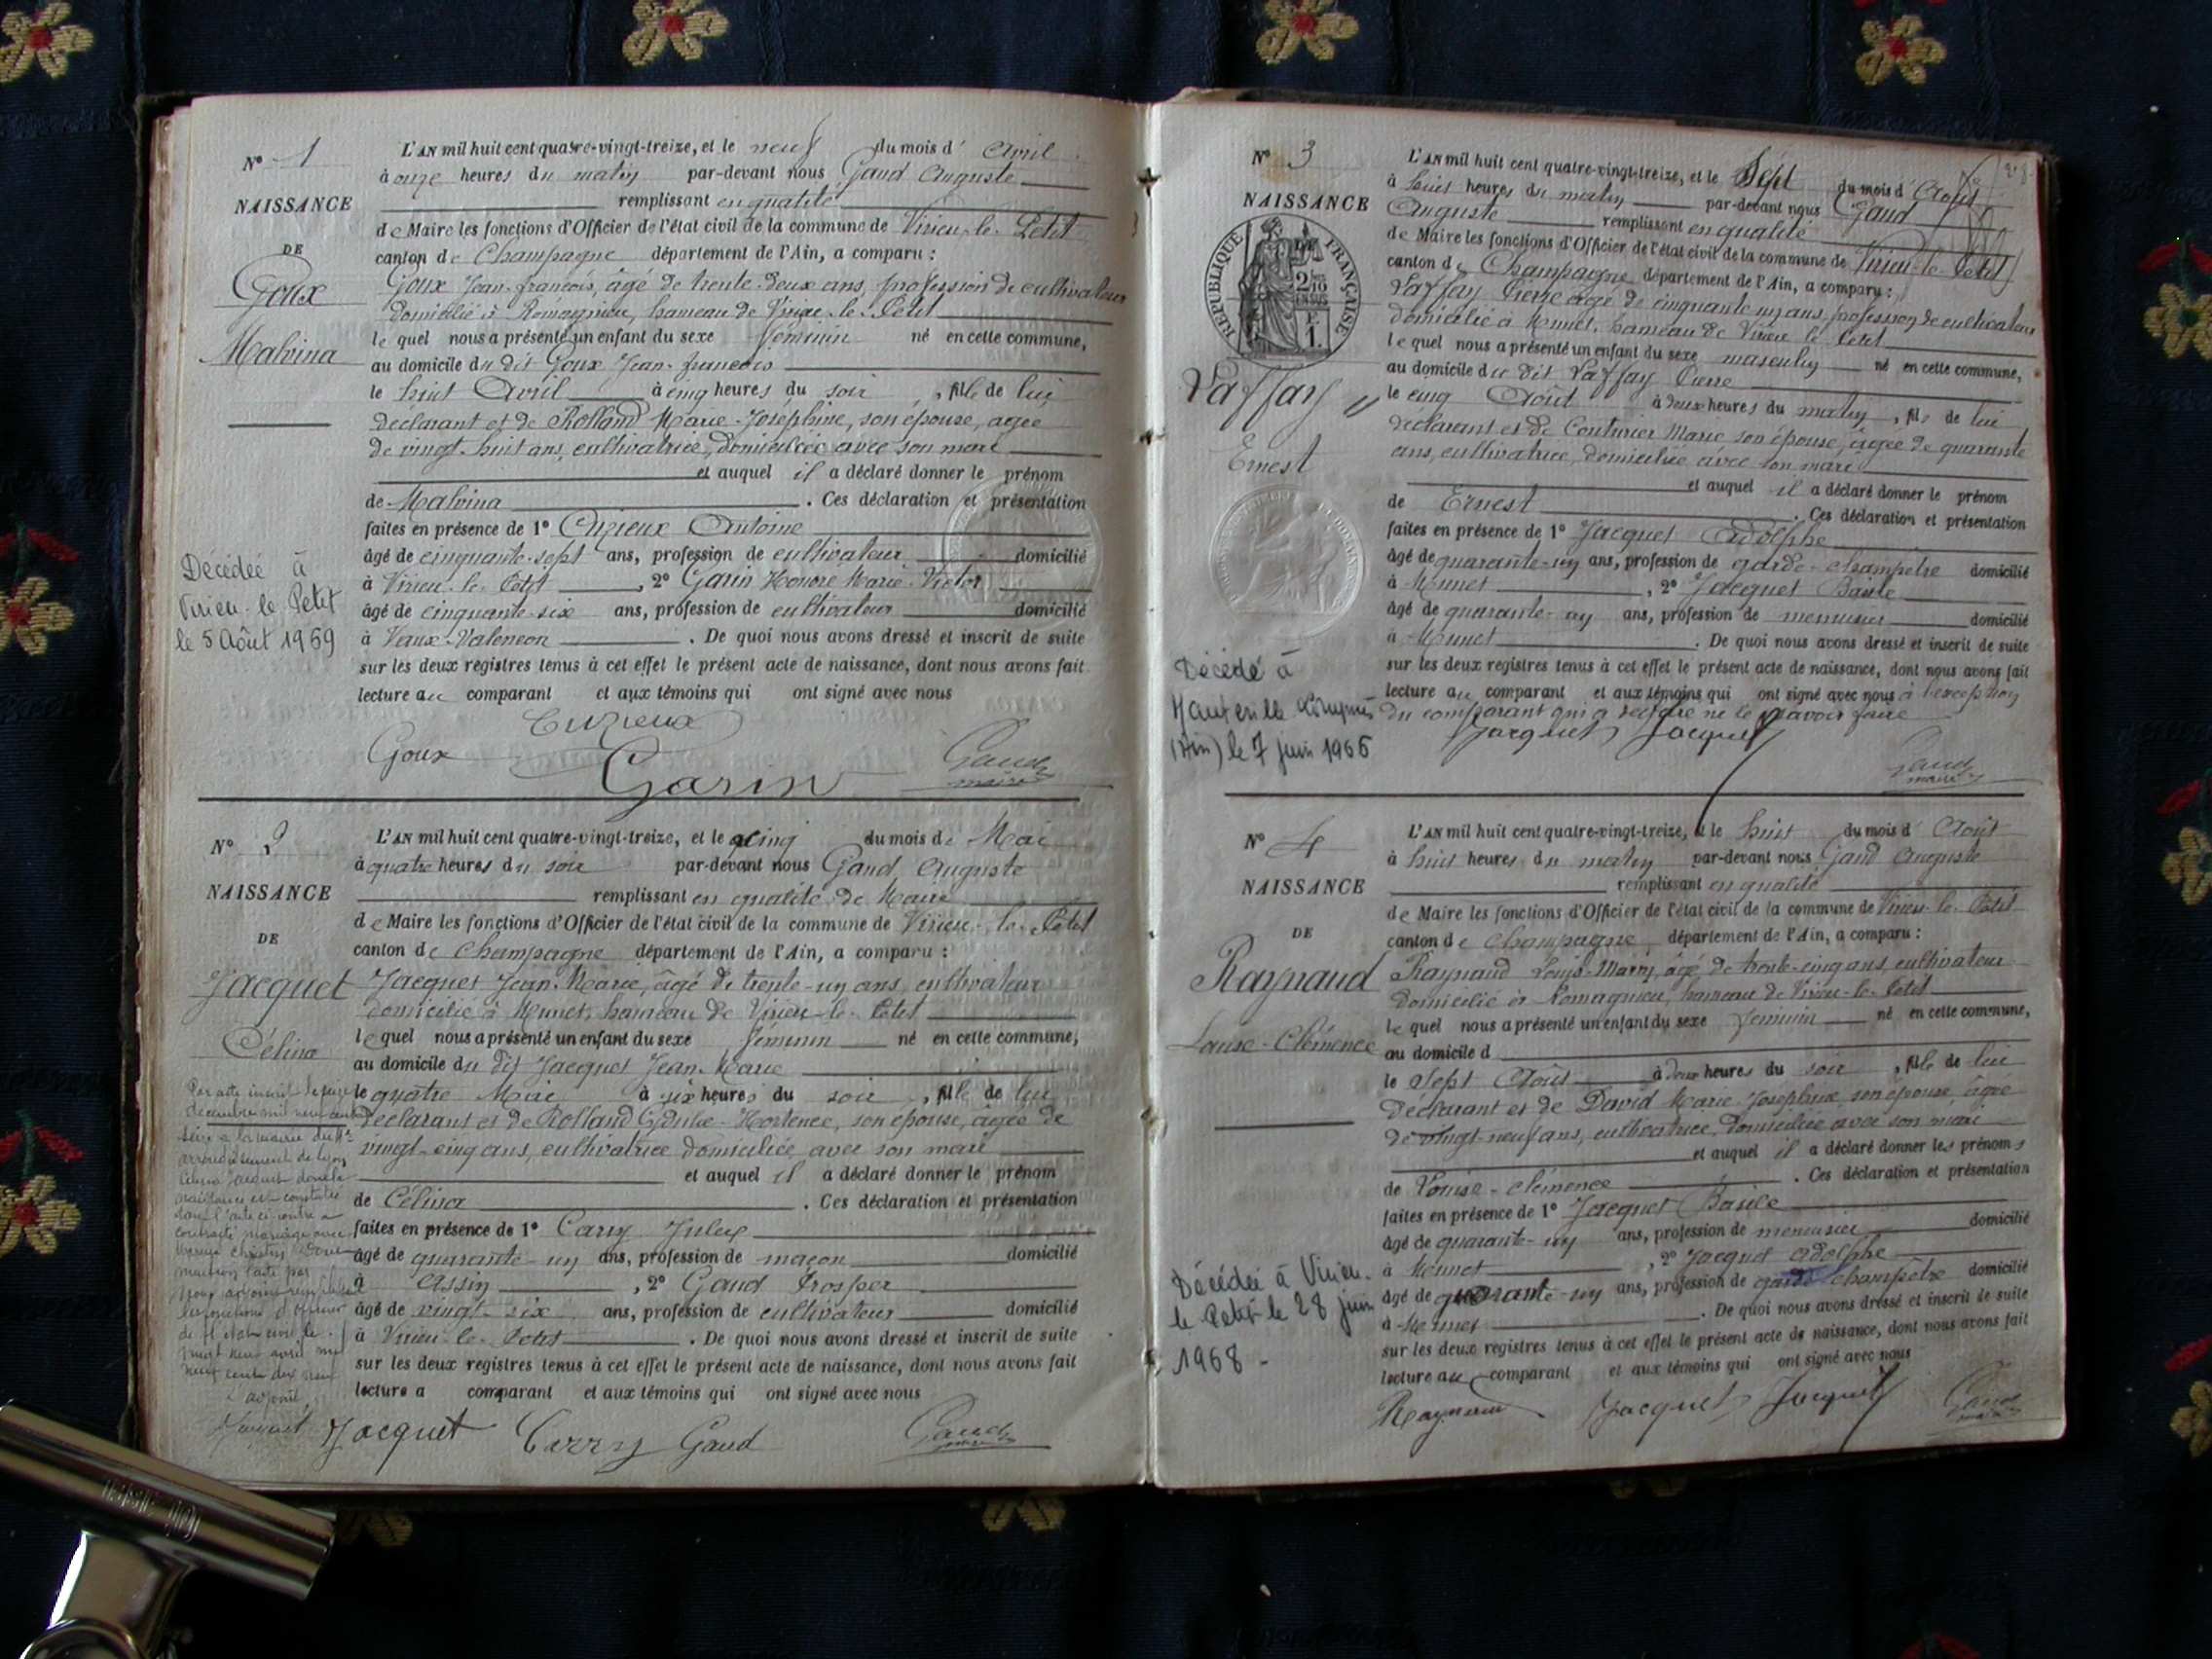 N° 1
NAISSANCE
DE
Goux
Malvina
L'AN mil huit cent quatre-vingt-treize, et le neuf du mois d' Avril
à onze heures du matin par-devant nous Gaud Auguste
remplissant en qualité
de Maire les fonctions d'Officier de l'état civil de la commune de Virieu-le-Petit
canton de Champagne département de l'Ain, a comparu :
Goux Jean-françois, âgé de trente-deux ans, profession de cultivateur
domicilié à Romagnieu, hameau de Virieu-le-Petit
le quel nous a présenté un enfant du sexe féminin né en cette commune,
au domicile du dit Goux Jean-françois
le huit Avril à cinq heures du soir, fille de lui
déclarant et de Rolland Marie-Joséphine, son épouse, agée
de vingt-huit ans, cultivatrice, domiciliée avec son mari
et auquel il a déclaré donner le prénom
de Malvina. Ces déclaration et présentation
faites en présence de 1° Cuzieux Antoine
âgé de cinquante-sept ans, profession de cultivateur domicilié
à Virieu-le-Petit, 2° Garin Honoré Marie-Victor
âgé de cinquante-six ans, profession de cultivateur domicilié
à Vaux-Valencon. De quoi nous avons dressé et inscrit de suite
sur les deux registres tenus à cet effet le présent acte de naissance, dont nous avons fait
lecture au comparant et aux témoins qui ont signé avec nous
Décédée à
Virieu-le Petit
le 5 Août 1969
Cuzieux
Goux
Garin
Gaud
maire
N° 2
NAISSANCE
DE
Jacquet
Célina
L'AN mil huit cent quatre-vingt-treize, et le cinq du mois de Mai
à quatre heures du soir par-devant nous Gaud Auguste
remplissant en qualité de Maire
de Maire les fonctions d'Officier de l'état civil de la commune de Virieu-le-Petit
canton de Champagne département de l'Ain, a comparu :
Jacquet Jean-Marie, âgé de trente-un ans, cultivateur
domicilié à Munet, hameau de Virieu-le-Petit
le quel nous a présenté un enfant du sexe féminin né en cette commune,
au domicile du dit Jacquet Jean-Marie
le quatre Mai à six heures du soir, fille de lui
déclarant et de Rolland Hortence, son épouse, agée de
vingt-cinq ans, cultivatrice domiciliée avec son mari
et auquel il a déclaré donner le prénom
de Célina. Ces déclaration et présentation
faites en présence de 1° Carry Jules
âgé de quarante-un ans, profession de maçon domicilié
à Assin, 2° Gaud Prosper
âgé de vingt-six ans, profession de cultivateur domicilié
à Virieu-le-Petit. De quoi nous avons dressé et inscrit de suite
sur les deux registres tenus à cet effet le présent acte de naissance, dont nous avons fait
lecture a comparant et aux témoins qui ont signé avec nous
Par acte inscrit le
décembre mil neuf cent
à la mairie du
arrondissement de Lyon
Célina Jacquet dont la
naissance est constatée
dans l'acte ci-contre a
contracté mariage avec
mention faite par
nous adjoint
les fonctions d'officier
de l'état civil le
neuf avril mil
neuf cent dix neuf
L'adjoint,
Jacquet
Carry
Gaud
Gaud
maire
N° 3
NAISSANCE
RÉPUBLIQUE FRANÇAISE
Vaffay
Ernest
L'AN mil huit cent quatre-vingt-treize, et le Sept du mois d' Août
à huit heures du matin par-devant nous Gaud
Auguste remplissant en qualité
de Maire les fonctions d'Officier de l'état civil de la commune de Virieu-le-Petit
canton de Champagne département de l'Ain, a comparu :
Vaffay Pierre agé de cinquante un ans, profession de cultivateur
domicilié à Munet, hameau de Virieu le Petit
le quel nous a présenté un enfant du sexe masculin né en cette commune,
au domicile du dit Vaffay Pierre
le cinq Août à deux heures du matin, fils de lui
déclarant et de Couturier Marie son épouse, âgée de quarante
ans, cultivatrice, domiciliée avec son mari
et auquel il a déclaré donner le prénom
de Ernest. Ces déclaration et présentation
faites en présence de 1° Jacquet Adolphe
âgé de quarante-un ans, profession de garde-champêtre domicilié
à Munet, 2° Jacquet Basile
âgé de quarante-un ans, profession de menuisier domicilié
à Munet. De quoi nous avons dressé et inscrit de suite
sur les deux registres tenus à cet effet le présent acte de naissance, dont nous avons fait
lecture au comparant et aux témoins qui ont signé avec nous à l'exception
du comparant qui a déclaré ne le savoir faire
Décédé à
Hauteville Lompnes
(Ain) le 7 juin 1966
Jacquet Jacquet
Gaud
maire
N° 4
NAISSANCE
DE
Raynaud
Louise-Clémence
L'AN mil huit cent quatre-vingt-treize, et le huit du mois d' Août
à huit heures du matin par-devant nous Gaud Auguste
remplissant en qualité
de Maire les fonctions d'Officier de l'état civil de la commune de Virieu-le-Petit
canton de Champagne, département de l'Ain, a comparu :
Raynaud Louis-Marie, âgé de trente-cinq ans, cultivateur
domicilié à Romagnieu, hameau de Virieu-le-Petit
le quel nous a présenté un enfant du sexe féminin né en cette commune,
au domicile d
le Sept Août à deux heures du soir, fille de lui
déclarant et de David Marie Joséphine son épouse, âgée
de vingt-neuf ans, cultivatrice, domiciliée avec son mari
et auquel il a déclaré donner les prénoms
de Louise-Clémence. Ces déclaration et présentation
faites en présence de 1° Jacquet Basile
âgé de quarante-un ans, profession de menuisier domicilié
à Munet, 2° Jacquet Adolphe
âgé de quarante-un ans, profession de garde champêtre domicilié
à Munet. De quoi nous avons dressé et inscrit de suite
sur les deux registres tenus à cet effet le présent acte de naissance, dont nous avons fait
lecture au comparant et aux témoins qui ont signé avec nous
Décédée à Virieu-
le Petit le 28 juin
1968 -
Raynaud Jacquet Jacquet
Gaud
maire